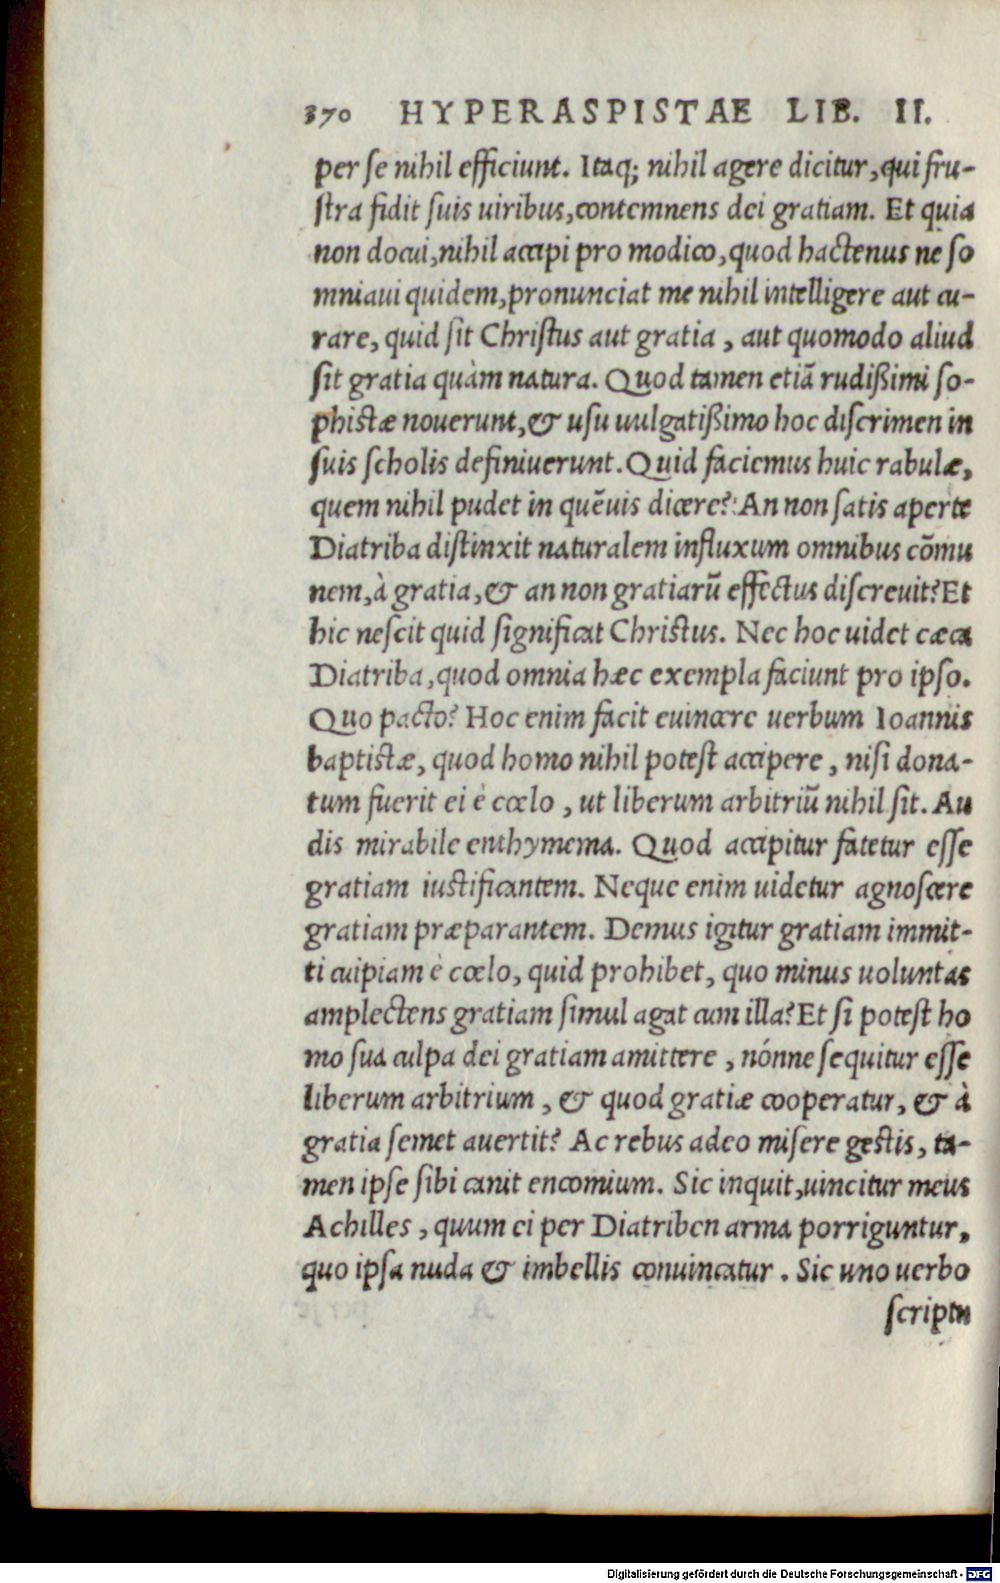 370 HYPERASPISTAE LIB. II.
per se nihil efficiunt. Itaq; nihil agere dicitur, qui fru-
stra fidit suis uiribus, contemnens dei gratiam. Et quia
non docui, nihil accipi pro modico, quod hactenus ne so
mniaui quidem, pronunciat me nihil intelligere aut cu-
rare, quid sit Christus aut gratia, aut quomodo aliud
sit gratia quàm natura. Quod tamen etiã rudißimi so-
phistæ nouerunt, & usu uulgatißimo hoc discrimen in
suis scholis definiuerunt. Quid faciemus huic rabulæ,
quem nihil pudet in quẽuis dicere? An non satis aperte
Diatriba distinxit naturalem influxum omnibus cõmu
nem, à gratia, & an non gratiarũ effectus discreuit? Et
hic nescit quid significat Christus. Nec hoc uidet cæca
Diatriba, quod omnia hæc exempla faciunt pro ipso.
Quo pacto? Hoc enim facit euincere uerbum Ioannis
baptistæ, quod homo nihil potest accipere, nisi dona-
tum fuerit ei è cœlo, ut liberum arbitriũ nihil sit. Au
dis mirabile enthymema. Quod accipitur fatetur esse
gratiam iustificantem. Neque enim uidetur agnoscere
gratiam præparantem. Demus igitur gratiam immit-
ti cuipiam è cœlo, quid prohibet, quo minus uoluntas
amplectens gratiam simul agat cum illa? Et si potest ho
mo sua culpa dei gratiam amittere, nónne sequitur esse
liberum arbitrium, & quod gratiæ cooperatur, & à
gratia semet auertit? Ac rebus adeo misere gestis, ta-
men ipse sibi canit encomium. Sic inquit, uincitur meus
Achilles, quum ei per Diatriben arma porriguntur,
quo ipsa nuda & imbellis conuincatur. Sic uno uerbo
scriptu
Digitalisierung gefördert durch die Deutsche Forschungsgemeinschaft - DFG